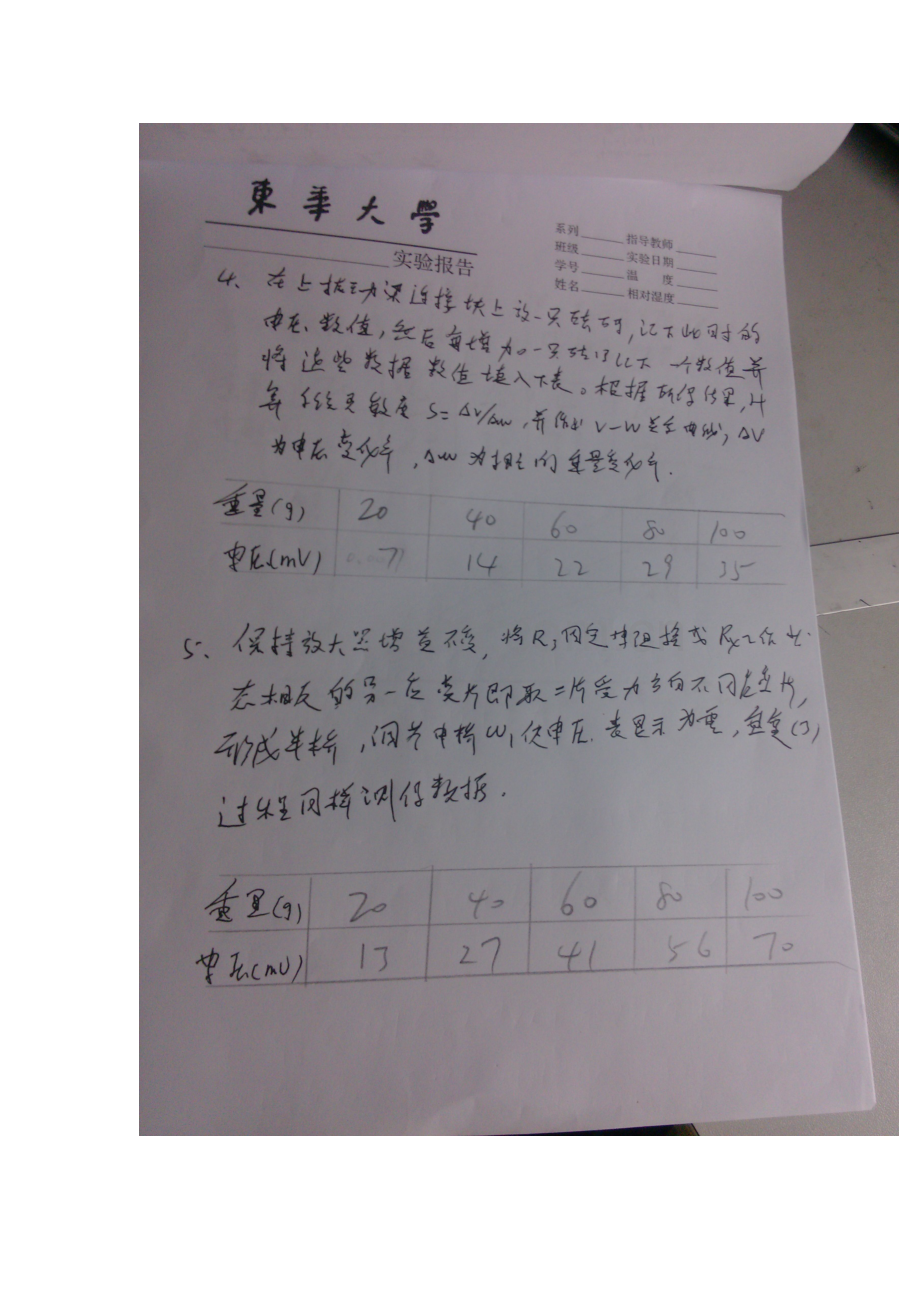 東華大學
实验报告
系列 指导教师
班级 实验日期
学号 温 度
姓名 相对湿度
4、在上振动梁连接块上放一只砝码,记下此时的
电压数值,然后每增加一只砝码记下一个数值并
将这些数据数值填入下表。根据所得结果,计
算系统灵敏度 S=ΔV/Δw,并作出 V-W关系曲线,ΔV
为电压变化率,Δw为相应的重量变化率.
重量(g) 20 40 60 80 100
电压(mV) 7 14 22 29 35
5、保持放大器增益不变,将R3固定电阻换成Rx工作状
态相反的另一应变片即取二片受力方向不同应变片,
形成半桥,调节电桥W1使电压表显示为零,重复(3)
过程同样测得数据.
重量(g) 20 40 60 80 100
电压(mV) 13 27 41 56 70